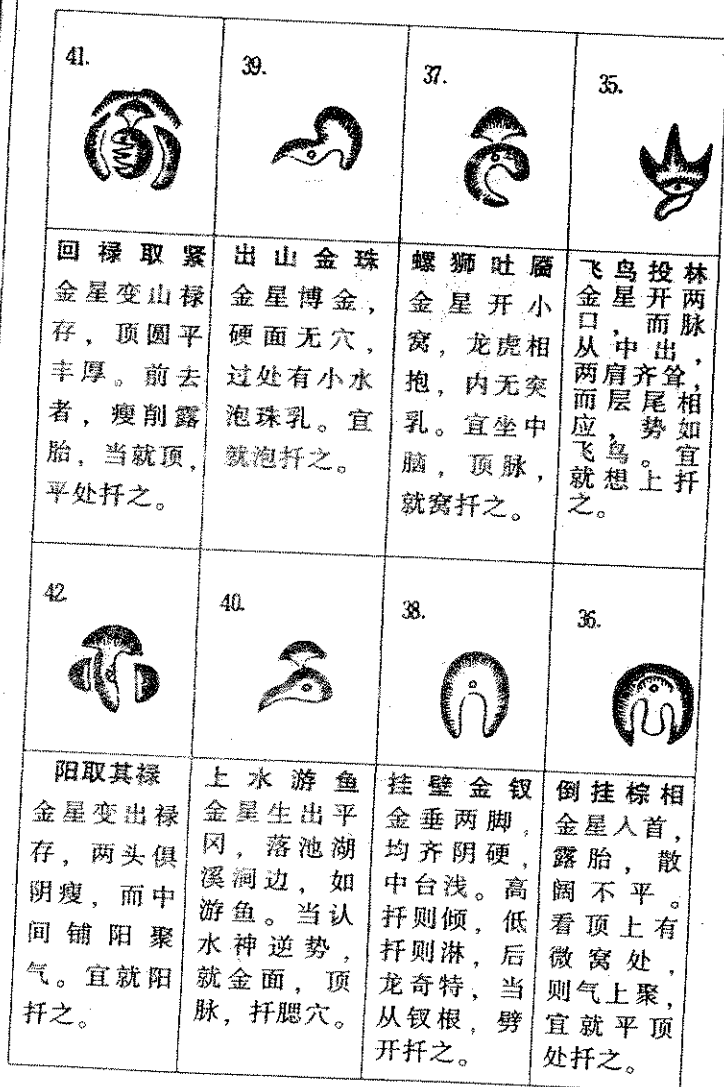 41.
回禄取紧
金星变山禄
存，顶圆平
丰厚。前去
者，瘦削露
胎，当就顶，
平处扦之。
39.
出山金珠
金星博金，
硬面无穴，
过处有小水
泡珠乳。宜
就泡扦之。
37.
螺狮吐靥
金星开小
窝，龙虎相
抱，内无突
乳。宜坐中
脑，顶脉，
就窝扦之。
35.
飞鸟投林
金星开两
口，而脉
从中出，
两肩齐耸，
而层尾相
应，势如
飞鸟。宜
就想上扦
之。
42.
阳取其禄
金星变出禄
存，两头俱
阴瘦，而中
间铺阳聚
气。宜就阳
扦之。
40.
上水游鱼
金星生出平
冈，落池湖
溪涧边，如
游鱼。当认
水神逆势，
就金面，顶
脉，扦腮穴。
38.
挂壁金钗
金垂两脚，
均齐阴硬，
中台浅。高
扦则倾，低
扦则淋，后
龙奇特，当
从钗根，劈
开扦之。
36.
倒挂棕相
金星入首，
露胎，散
阔不平。
看顶上有
微窝处，
则气上聚，
宜就平顶
处扦之。